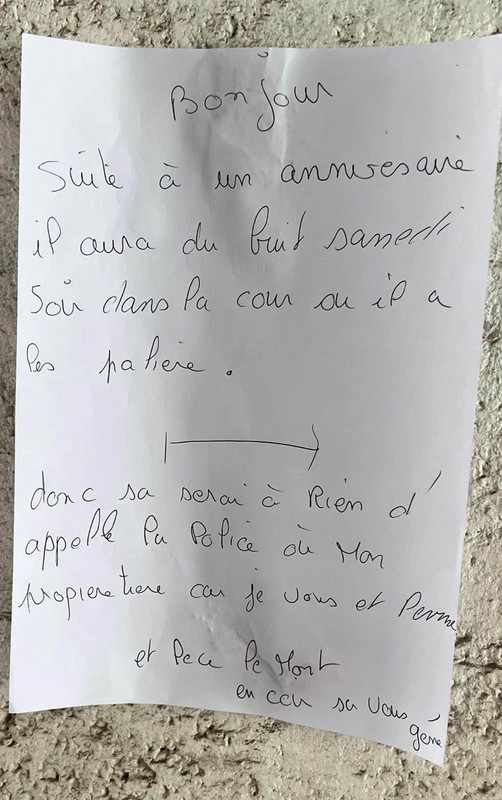 Bonjour
Suite à un annivesaire
il aura du buit samedi
Soir dans la cour ou il a
les palière.
donc sa serai à Rien d'
appelle la Police où Mon
propieretiere car je vous et Perme
et
en sa vous
géne